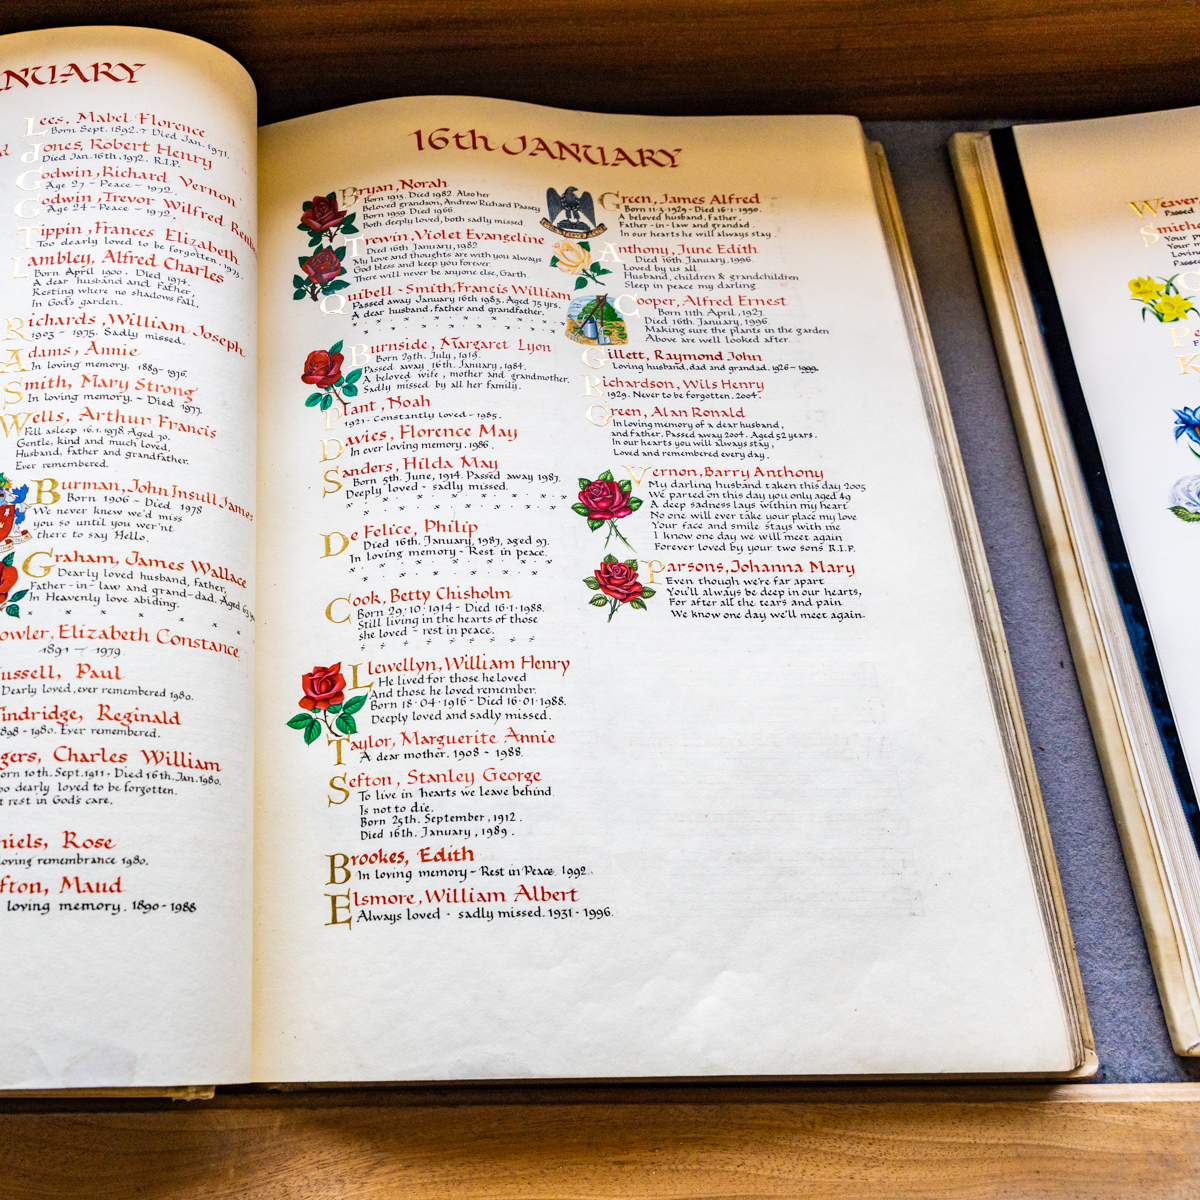 ANUARY
Lees, Mabel Florence
Born Sept. 1892 ~ Died Jan. 1971.
Jones, Robert Henry
Died Jan. 16th, 1972. R.I.P.
Godwin, Richard Vernon
Age 27 - Peace - 1972.
Godwin, Trevor Wilfred
Age 24 - Peace - 1972.
Tippin, Frances Elizabeth
Too dearly loved to be forgotten. 1973.
Lambley, Alfred Charles
Born April 1900. Died 1974.
A dear husband and father,
Resting where no shadows fall,
In God's garden.
Richards, William Joseph
1903 - 1975. Sadly missed.
Adams, Annie
In loving memory. 1889-1976.
Smith, Mary Strong
In loving memory. ~ Died 1977.
Wells, Arthur Francis
Fell asleep 16.1.1978. Aged 70.
Gentle, kind and much loved,
Husband, father and grandfather.
Ever remembered.
Burman, John Insull James
Born 1906 - Died 1978
We never knew we'd miss
you so until you wer'nt
there to say Hello.
Graham, James Wallace
Dearly loved husband, father,
Father-in-law and grand-dad. Aged
In Heavenly love abiding.
owler, Elizabeth Constance
1891 - 1979
ussell, Paul
Dearly loved, ever remembered 1980.
indridge, Reginald
1898 - 1980. Ever remembered.
gers, Charles William
orn 10th. Sept. 1911 - Died 16th. Jan. 1980.
oo dearly loved to be forgotten.
t rest in God's care.
niels, Rose
loving remembrance 1980.
fton, Maud
loving memory. 1890-1988
16th JANUARY
Bryan, Norah
Born 1915. Died 1982. Also her
Beloved grandson, Andrew Richard Passey
Born 1959. Died 1966
Both deeply loved, both sadly missed.
Trewin, Violet Evangeline
Died 16th January, 1982
My love and thoughts are with you always.
God bless and keep you forever.
There will never be anyone else, Garth.
Quibell-Smith, Francis William
Passed away January 16th 1983. Aged 75 yrs.
A dear husband, father and grandfather.
Burnside, Margaret Lyon
Born 29th. July, 1919.
Passed away 16th. January, 1984.
A beloved wife, mother and grandmother.
Sadly missed by all her family.
Plant, Noah
1921 - Constantly loved - 1985.
Davies, Florence May
In ever loving memory. 1986.
Sanders, Hilda May
Born 5th. June, 1914. Passed away 1987.
Deeply loved - sadly missed.
De Felice, Philip
Died 16th. January, 1987, aged 93.
In loving memory - Rest in peace.
Cook, Betty Chisholm
Born 29.10.1914 - Died 16.1.1988.
Still living in the hearts of those
she loved - rest in peace.
Llewellyn, William Henry
He lived for those he loved
And those he loved remember.
Born 18.04.1916 - Died 16.01.1988.
Deeply loved and sadly missed.
Taylor, Marguerite Annie
A dear mother. 1908 - 1988.
Sefton, Stanley George
To live in hearts we leave behind
Is not to die.
Born 25th. September, 1912.
Died 16th. January, 1989.
Brookes, Edith
In loving memory - Rest in Peace. 1992.
Elsmore, William Albert
Always loved - sadly missed. 1931 - 1996.
Green, James Alfred
Born 11.3.1929 - Died 16.1.1990.
A beloved husband, father,
Father-in-law and grandad.
In our hearts he will always stay.
Anthony, June Edith
Died 16th. January, 1996.
Loved by us all
Husband, children & grandchildren
Sleep in peace my darling.
Cooper, Alfred Ernest
Born 11th. April, 1927.
Died 16th. January, 1996
Making sure the plants in the garden
Above are well looked after.
Gillett, Raymond John
Loving husband, dad and grandad. 1926 - 1999.
Richardson, Wils Henry
1929. Never to be forgotten. 2004.
Green, Alan Ronald
In loving memory of a dear husband,
and father. Passed away 2004. Aged 52 years.
In our hearts you will always stay,
Loved and remembered every day.
Vernon, Barry Anthony
My darling husband taken this day 2005
We parted on this day you only aged 49
A deep sadness lays within my heart
No one will ever take your place my love
Your face and smile stays with me
I know one day we will meet again
Forever loved by your two sons R.I.P.
Parsons, Johanna Mary
Even though we're far apart
You'll always be deep in our hearts,
For after all the tears and pain
We know one day we'll meet again.
Weaver,
Passed
Smithe
Your
Your
Loving
Passed